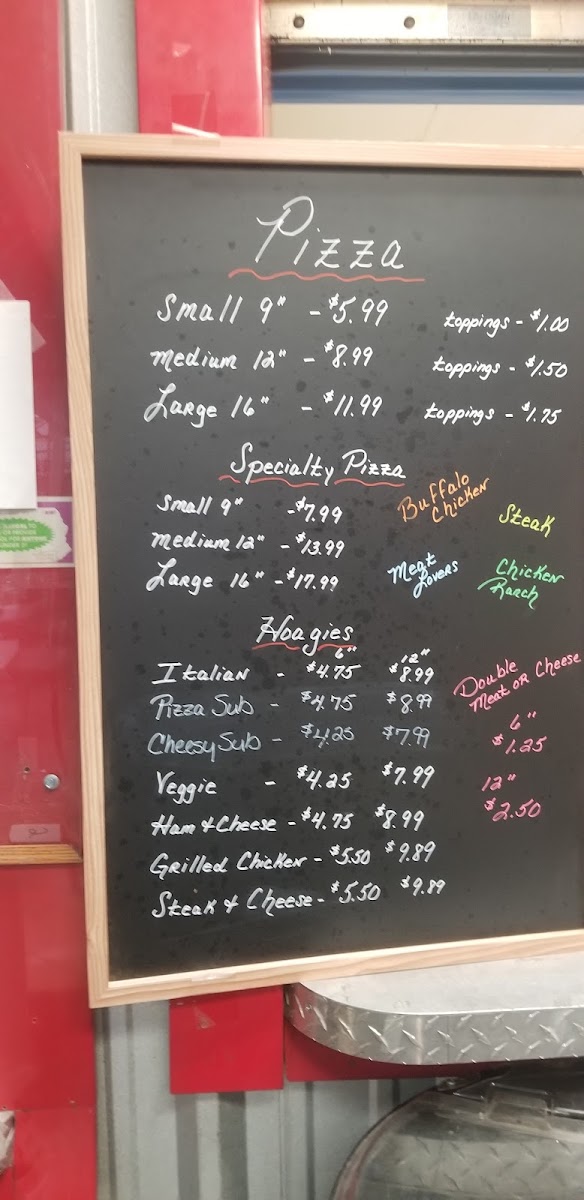 Pizza
Small 9" - $5.99 toppings - $1.00
medium 12" - $8.99 toppings - $1.50
Large 16" - $11.99 toppings - $1.75
Specialty Pizza
Small 9" - $7.99 Buffalo Chicken Steak
medium 12" - $13.99
Large 16" - $17.99 Meat Lovers Chicken Ranch
Hoagies
6" 12"
Italian - $4.75 $8.99
Pizza Sub - $4.75 $8.99
Cheesy Sub - $4.25 $7.99
Veggie - $4.25 $7.99
Ham & Cheese - $4.75 $8.99
Grilled Chicken - $5.50 $9.89
Steak & Cheese - $5.50 $9.89
Double
Meat or Cheese
6"
$1.25
12"
$2.50